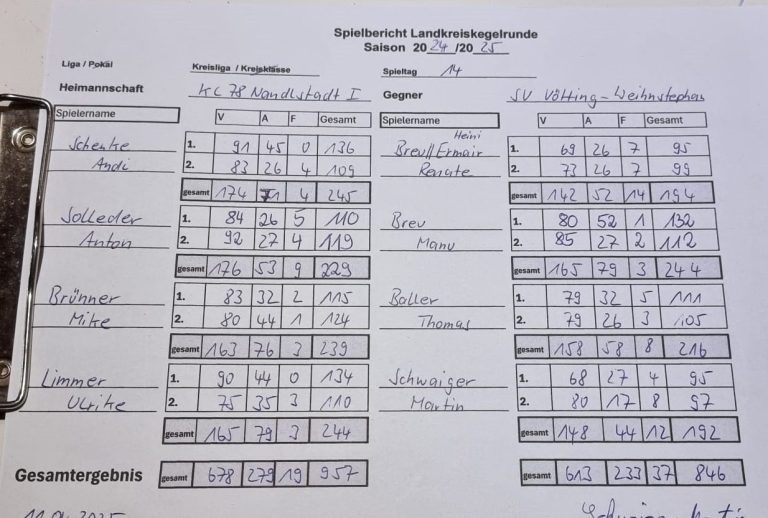 Spielbericht Landkreiskegelrunde
Saison 2024/2025
Liga / Pokal Kreisliga / Kreisklasse Spieltag 14
Heimannschaft KC 78 Nandlstadt I Gegner SV Vötting-Weihnstephan
Spielername V A F Gesamt Spielername V A F Gesamt
Heini
Schenke 1. 91 45 0 136 Breu//Ermair 1. 69 26 7 95
Andi 2. 83 26 4 109 Renate 2. 73 26 7 99
gesamt 174 71 4 245 gesamt 142 52 14 194
Solleder 1. 84 26 5 110 Breu 1. 80 52 1 132
Anton 2. 92 27 4 119 Manu 2. 85 27 2 112
gesamt 176 53 9 229 gesamt 165 79 3 244
Brünner 1. 83 32 2 115 Baller 1. 79 32 5 111
Mike 2. 80 44 1 124 Thomas 2. 79 26 3 105
gesamt 163 76 3 239 gesamt 158 58 8 216
Limmer 1. 90 44 0 134 Schwaiger 1. 68 27 4 95
Ulrike 2. 75 35 3 110 Martin 2. 80 17 8 97
gesamt 165 79 3 244 gesamt 148 44 12 192
Gesamtergebnis gesamt 678 279 19 957 gesamt 613 233 37 846